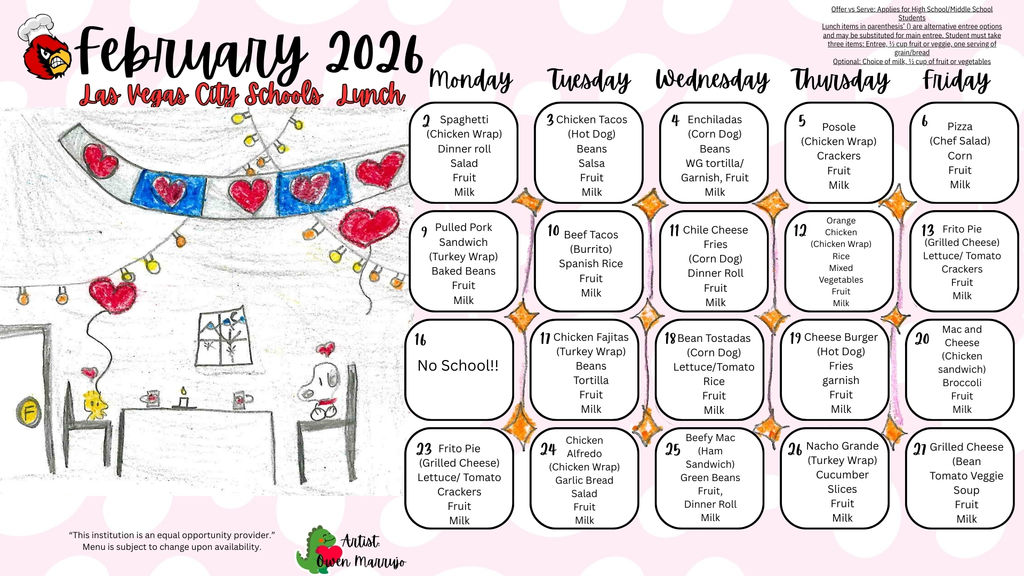 February 2026
Las Vegas City Schools Lunch
Offer vs Serve: Applies for High School/Middle School
Students
Lunch items in parenthesis' () are alternative entree options
and may be substituted for main entree. Student must take
three items: Entree, ½ cup fruit or veggie, one serving of
grain/bread
Optional: Choice of milk, ½ cup of fruit or vegetables
Monday
Tuesday
Wednesday
Thursday
Friday
2 Spaghetti
(Chicken Wrap)
Dinner roll
Salad
Fruit
Milk
3 Chicken Tacos
(Hot Dog)
Beans
Salsa
Fruit
Milk
4 Enchiladas
(Corn Dog)
Beans
WG tortilla/
Garnish, Fruit
Milk
5 Posole
(Chicken Wrap)
Crackers
Fruit
Milk
6 Pizza
(Chef Salad)
Corn
Fruit
Milk
9 Pulled Pork
Sandwich
(Turkey Wrap)
Baked Beans
Fruit
Milk
10 Beef Tacos
(Burrito)
Spanish Rice
Fruit
Milk
11 Chile Cheese
Fries
(Corn Dog)
Dinner Roll
Fruit
Milk
12 Orange
Chicken
(Chicken Wrap)
Rice
Mixed
Vegetables
Fruit
Milk
13 Frito Pie
(Grilled Cheese)
Lettuce/ Tomato
Crackers
Fruit
Milk
16
No School!!
17 Chicken Fajitas
(Turkey Wrap)
Beans
Tortilla
Fruit
Milk
18 Bean Tostadas
(Corn Dog)
Lettuce/Tomato
Rice
Fruit
Milk
19 Cheese Burger
(Hot Dog)
Fries
garnish
Fruit
Milk
20 Mac and
Cheese
(Chicken
sandwich)
Broccoli
Fruit
Milk
23 Frito Pie
(Grilled Cheese)
Lettuce/ Tomato
Crackers
Fruit
Milk
24 Chicken
Alfredo
(Chicken Wrap)
Garlic Bread
Salad
Fruit
Milk
25 Beefy Mac
(Ham
Sandwich)
Green Beans
Fruit,
Dinner Roll
Milk
26 Nacho Grande
(Turkey Wrap)
Cucumber
Slices
Fruit
Milk
27 Grilled Cheese
(Bean
Tomato Veggie
Soup
Fruit
Milk
F
"This institution is an equal opportunity provider."
Menu is subject to change upon availability.
Artist:
Owen Marrujo